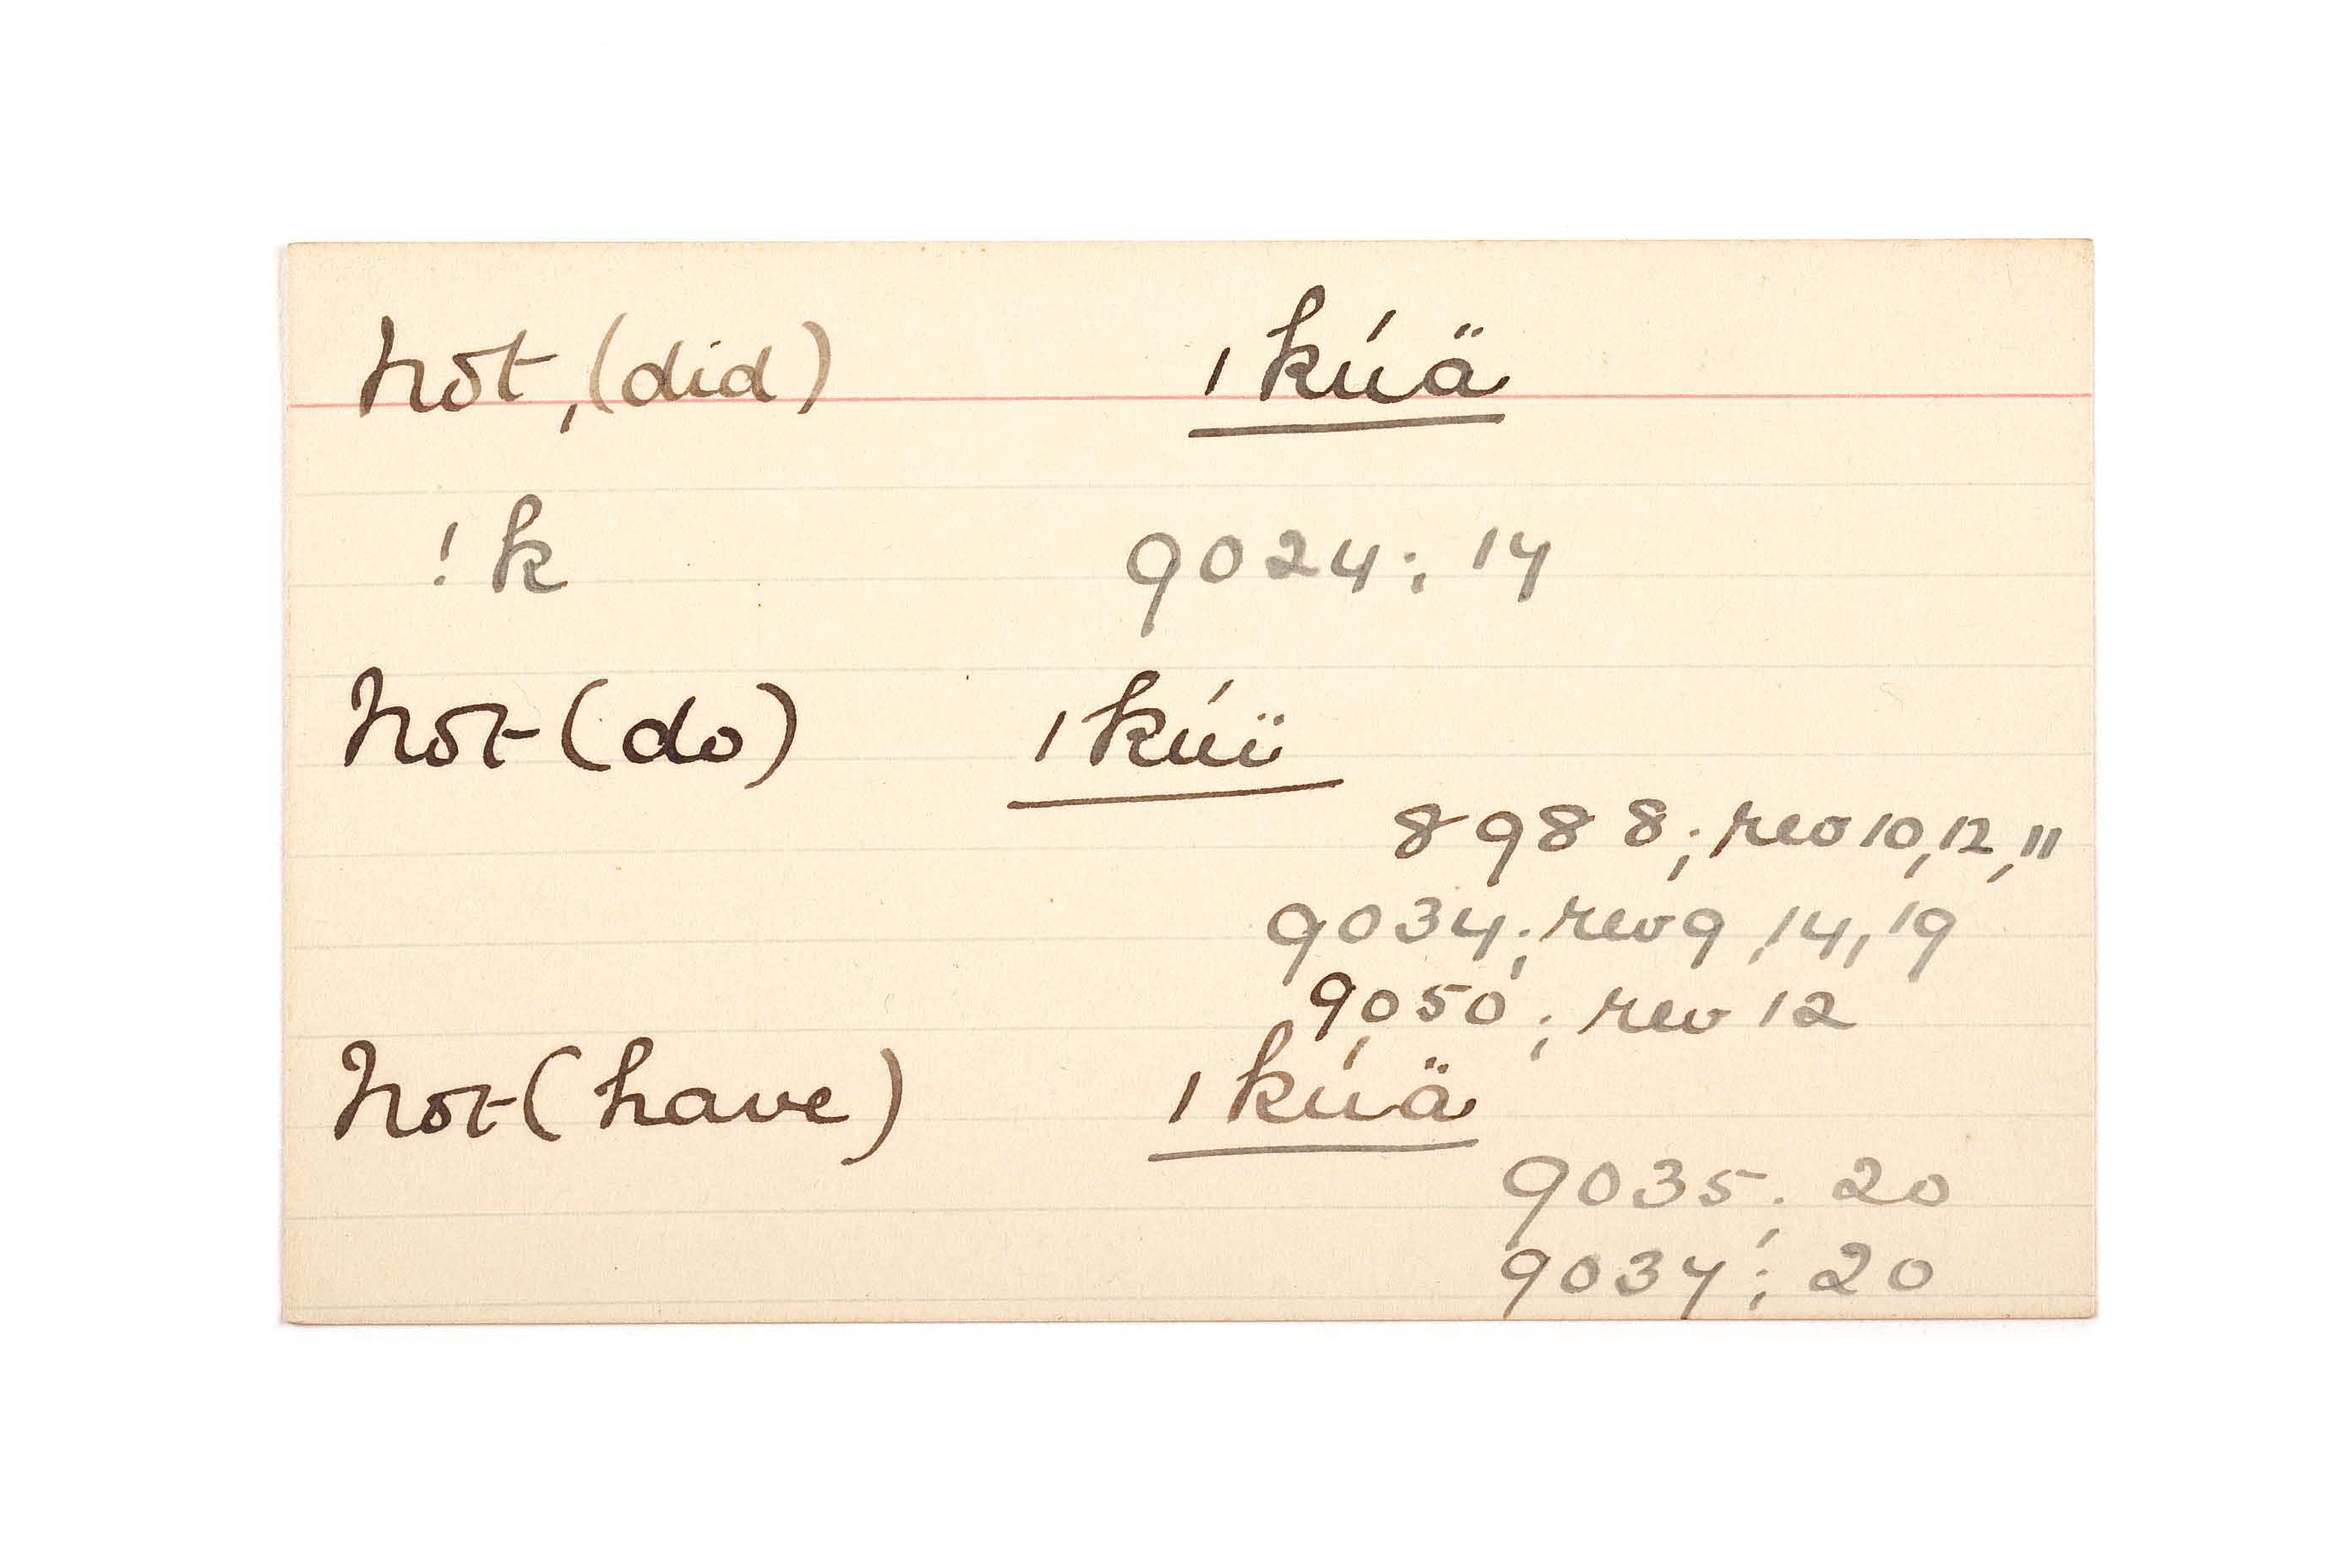 not, (did) ǀkúä
!k 9024; 14
not (do) ǀkúï
8988; rev 10, 12, 11
9034; rev 9, 14, 19
9050; rev 12
not (have) ǀkúä
9035; 20
9034; 20